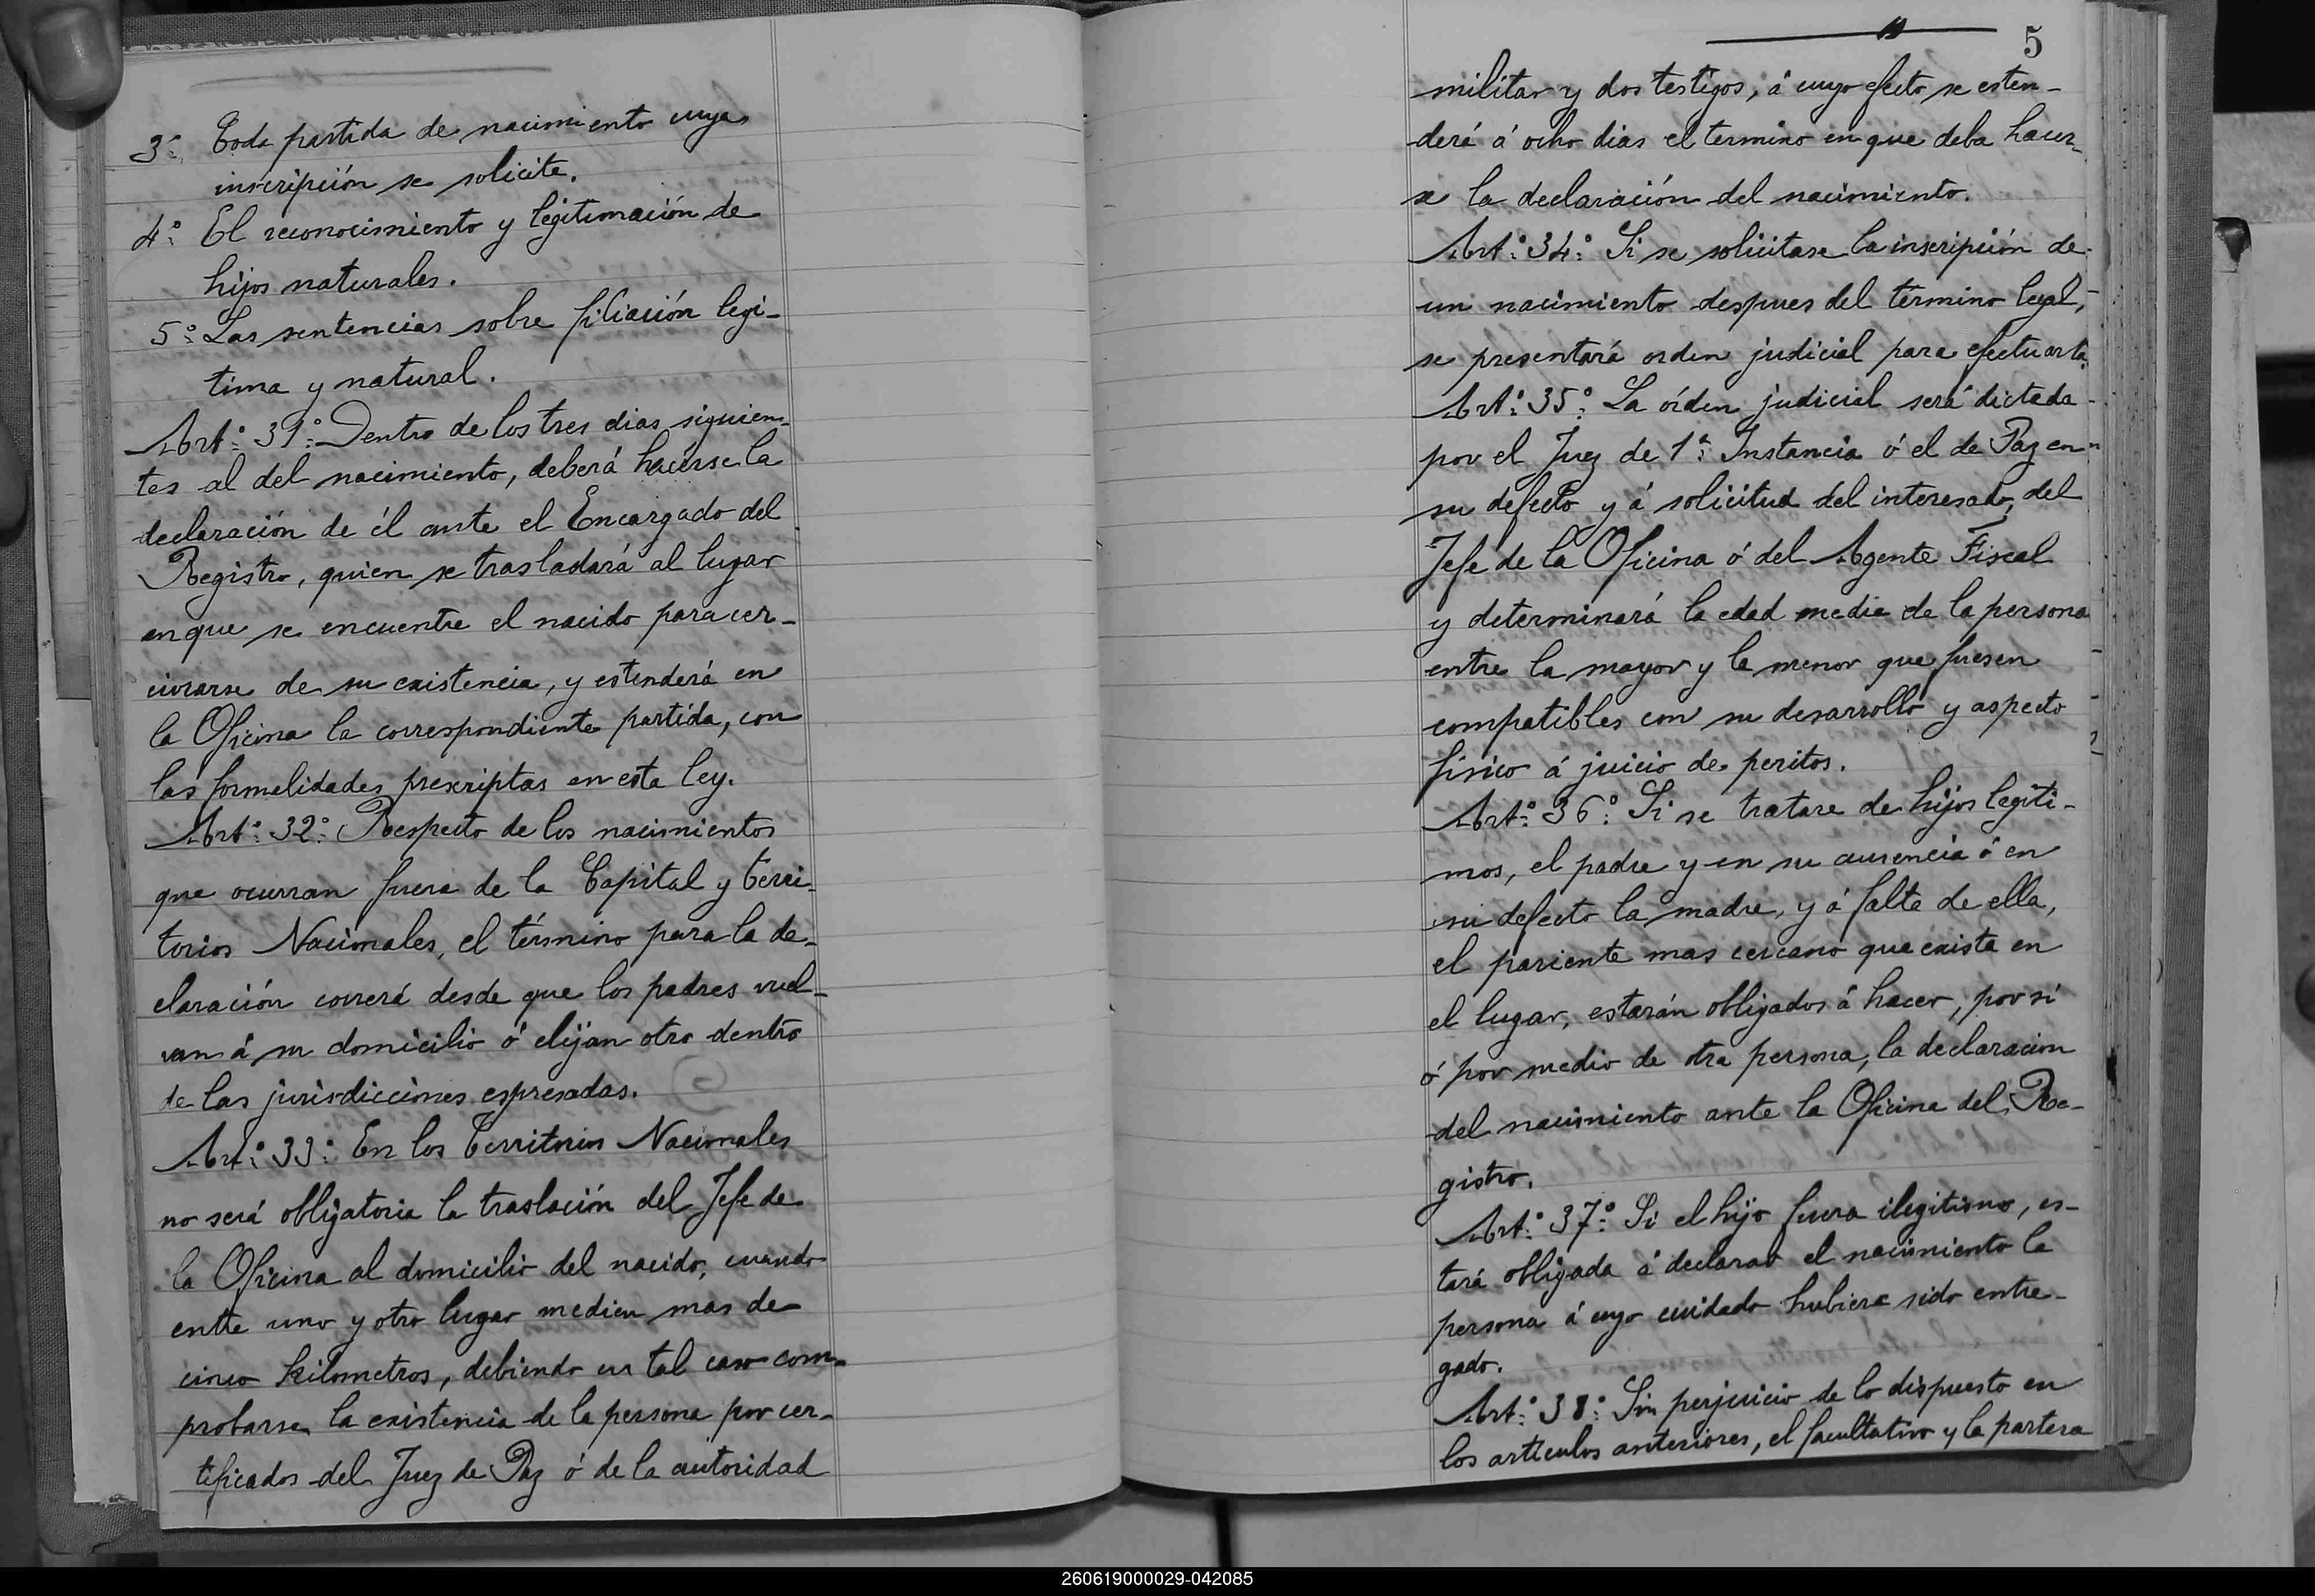 3º Toda partida de nacimiento cuya
inscripción se solicite.
4º El reconocimiento y legitimación de
hijos naturales.
5º Las sentencias sobre filiación legi-
tima y natural.
Artº 31º Dentro de los tres dias siguien-
tes al del nacimiento, deberá hacerse la
declaración de él ante el Encargado del
Registro, quien se trasladará al lugar
en que se encuentre el nacido para cer-
ciorarse de su existencia, y estenderá en
la Oficina la correspondiente partida, con
las formalidades prescriptas en esta ley.
Artº 32º Respecto de los nacimientos
que ocurran fuera de la Capital y Terri-
torios Nacionales, el término para la de-
claración correrá desde que los padres vuel-
van á su domicilio ó elijan otro dentro
de las jurisdicciones espresadas.
Artº 33º En los Territorios Nacionales
no será obligatoria la traslación del Jefe de
la Oficina al domicilio del nacido, cuando
entre uno y otro lugar medien mas de
cinco kilometros, debiendo en tal caso com-
probarse la existencia de la persona por cer-
tificados del Juez de Paz ó de la autoridad
5
militar y dos testigos, á cuyo efecto se esten-
derá á ocho dias el termino en que deba hacer-
se la declaración del nacimiento.
Artº 34º Si se solicitase la inscripción de
un nacimiento despues del término legal,
se presentará orden judicial para efectuarla.
Artº 35º La órden judicial será dictada
por el Juez de 1ª Instancia ó el de Paz en
su defecto y á solicitud del interesado, del
Jefe de la Oficina ó del Agente Fiscal
y determinará la edad media de la persona
entre la mayor y la menor que fuesen
compatibles con su desarrollo y aspecto
físico á juicio de peritos.
Artº 36º Si se tratare de hijos legíti-
mos, el padre y en su ausencia ó en
su defecto la madre, y á falta de ella,
el pariente mas cercano que exista en
el lugar, estarán obligados á hacer, por sí
ó por medio de otra persona, la declaración
del nacimiento ante la Oficina del Re-
gistro.
Artº 37º Si el hijo fuera ilegitimo, es-
tará obligada á declarar el nacimiento la
persona á cuyo cuidado hubiera sido entre-
gado.
Artº 38º Sin perjuicio de lo dispuesto en
los artículos anteriores, el facultativo y la partera
260619000029-042085